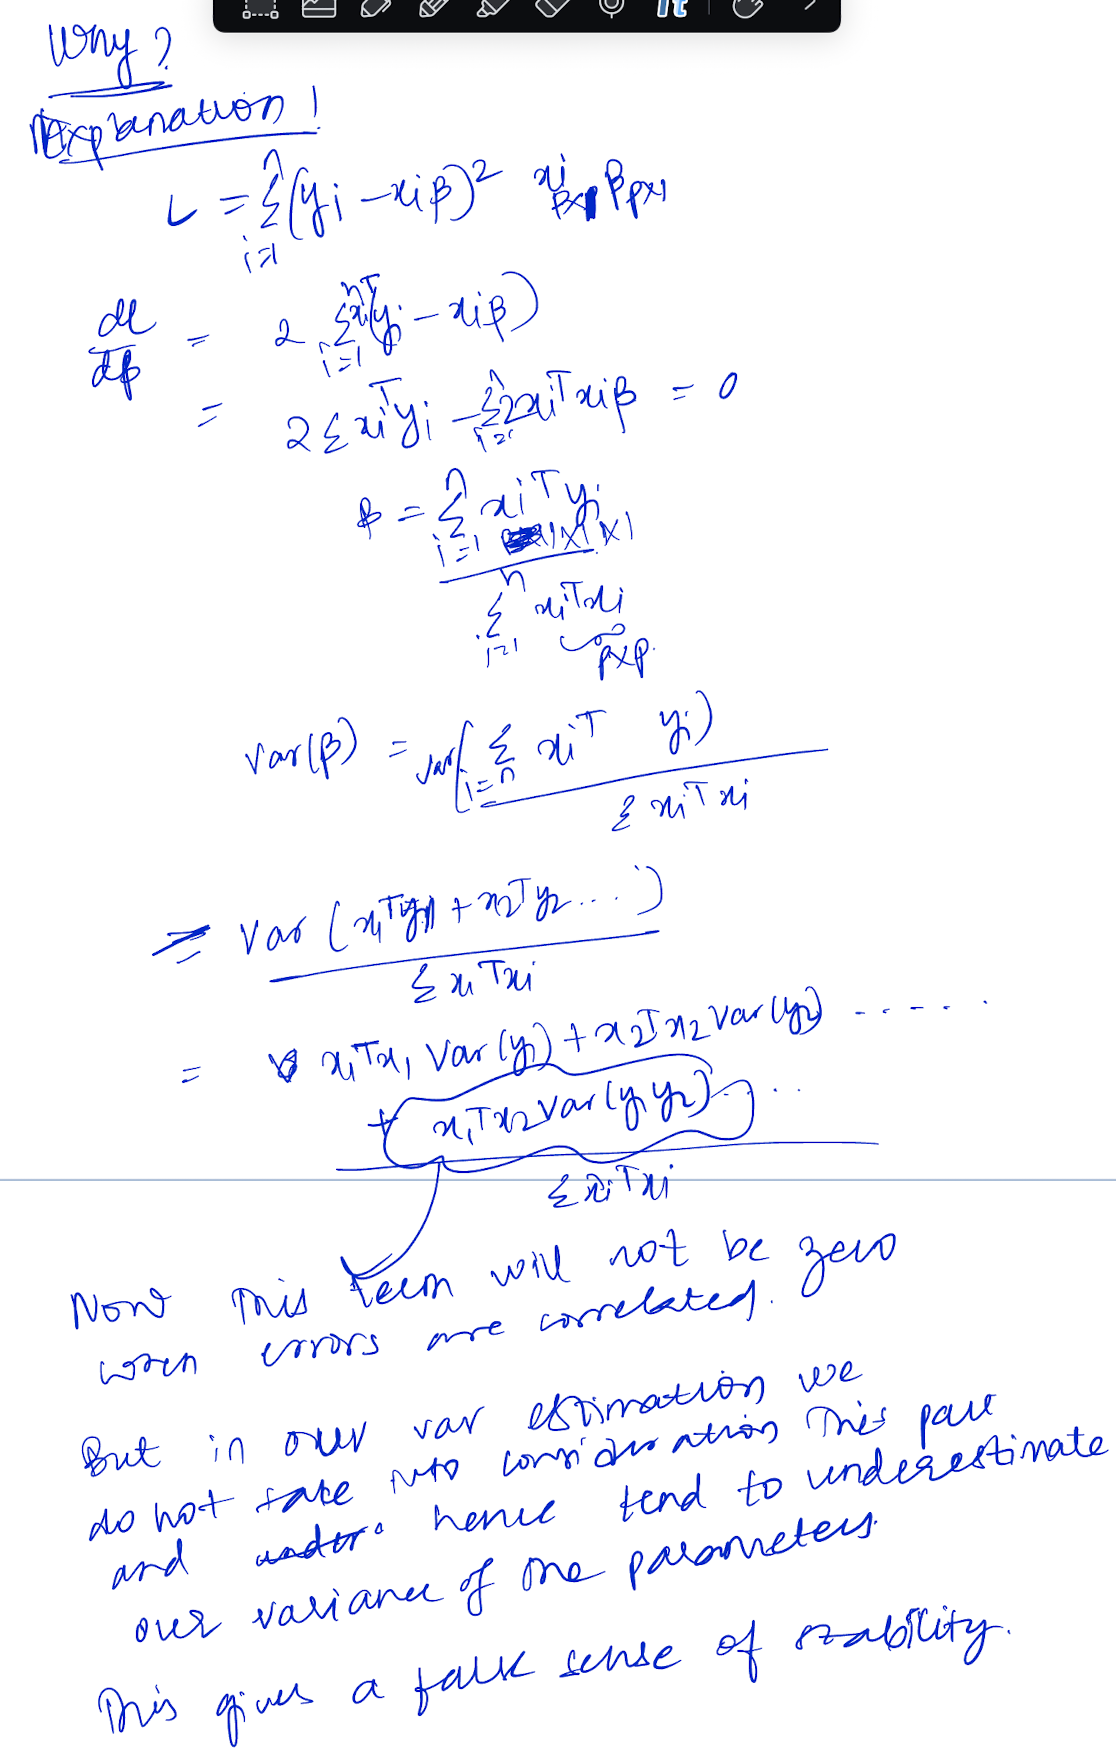 Why?
Explanation!
L = Σ_{i=1}^{n} (yi - xiβ)² xi β_{p×1}
dl/dβ = 2 Σ_{i=1}^{n} xi^T (yi - xiβ)
= 2 Σ xi^T yi - Σ_{i=1}^{n} 2 xi^T xi β = 0
β = Σ_{i=1}^{n} xi^T yi
1×1
Σ_{i=1}^{n} xi^T xi
p×p.
Var(β) = var( Σ_{i=n} xi^T yi)
Σ xi^T xi
= Var (x1^T y1 + x2^T y2 ...)
Σ xi^T xi
= x1^T x1 Var(y1) + x2^T x2 Var(y2) .....
+ x1^T x2 Var(y1 y2) ...
Σ xi^T xi
Now this term will not be zero
when errors are correlated.
But in our var estimation we
do not take into consideration this part
and hence tend to underestimate
our variance of the parameters.
This gives a false sense of stability.